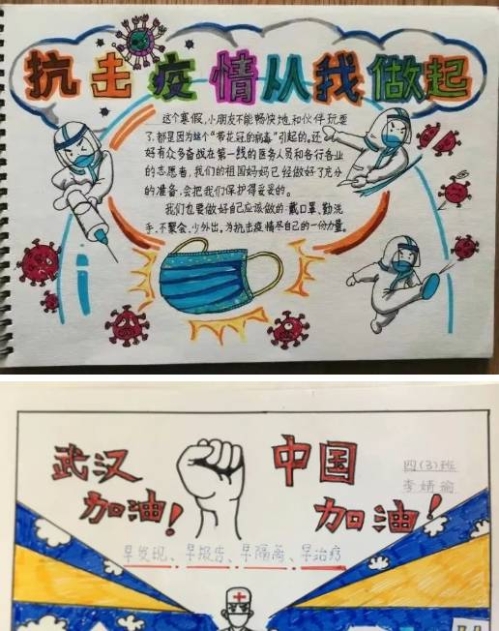 抗击疫情从我做起
这个寒假,小朋友不能畅快地和伙伴玩耍
了,都是因为这个“带花冠的病毒”引起的。还
好有众多奋战在第一线的医务人员和各行各业
的志愿者,我们的祖国妈妈已经做好了充分
的准备,会把我们保护得妥妥的。
我们也要做好自己应该做的:戴口罩、勤洗
手、不聚会、少外出。为抗击疫情尽自己的一份力量。
武汉
加油!
中国
加油!
四(3)班
李婧瑜
早发现、早报告、早隔离、早治疗